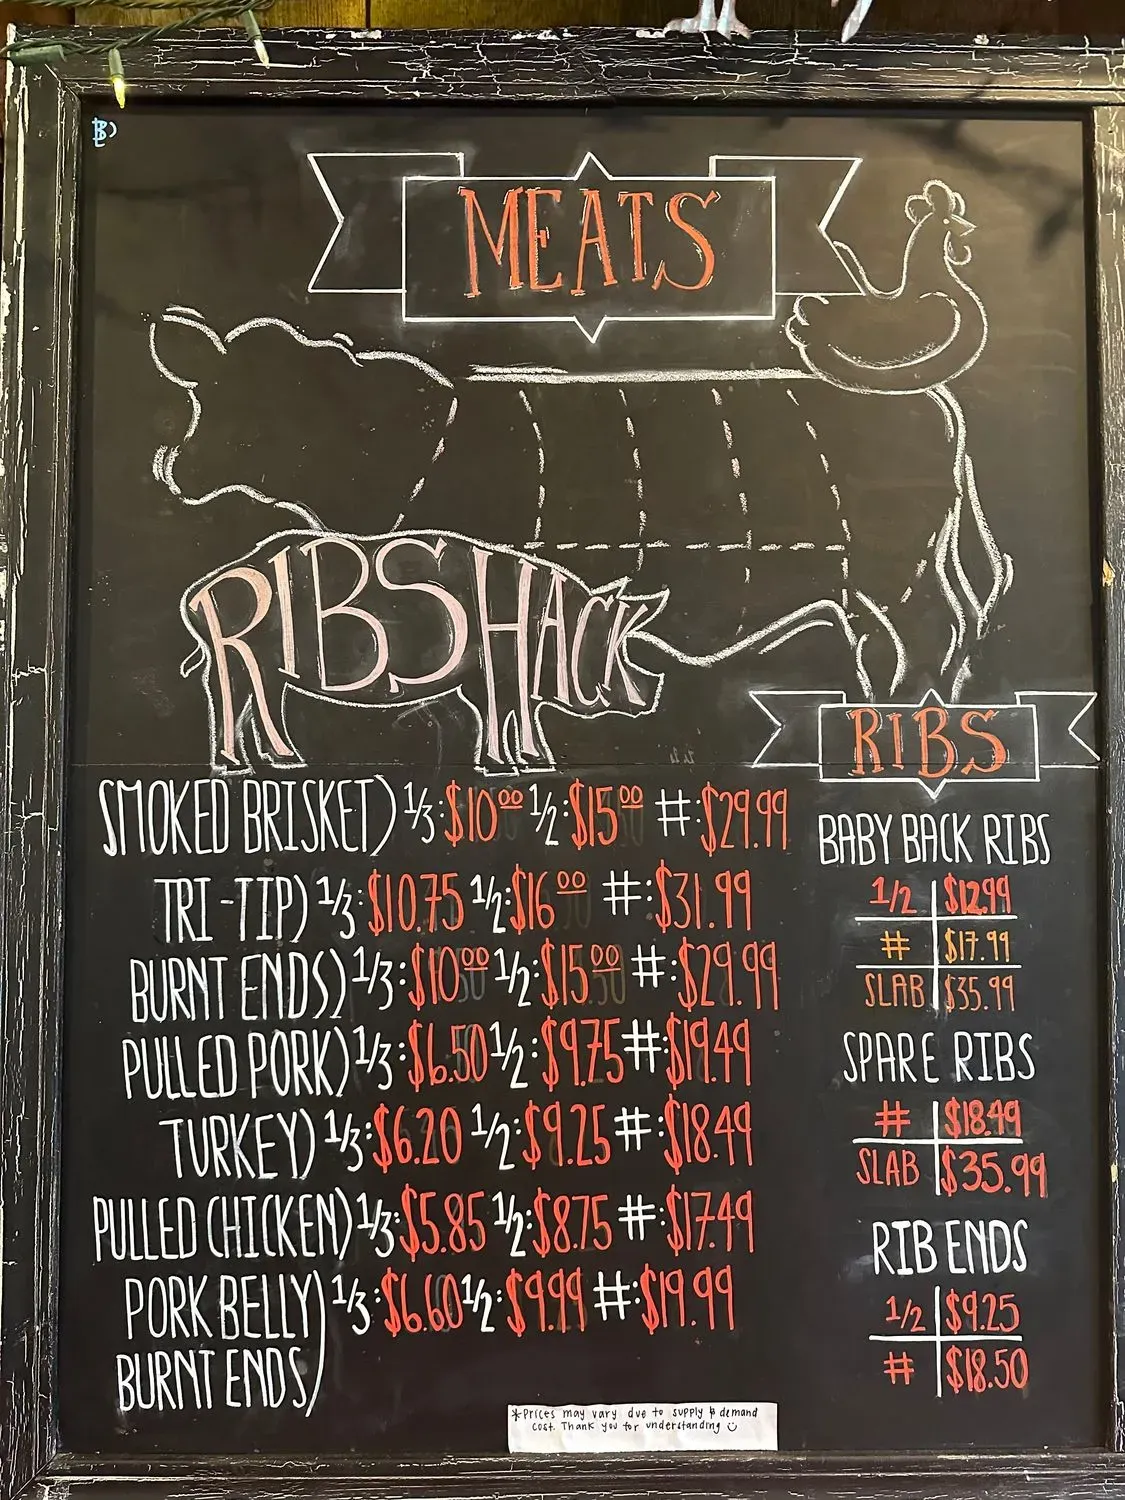 MEATS
RIBSHACK
SMOKED BRISKET) 1/3:$10.00 1/2:$15.00 #:$29.99
TRI-TIP) 1/3:$10.75 1/2:$16.00 #:$31.99
BURNT ENDS) 1/3:$10.00 1/2:$15.00 #:$29.99
PULLED PORK) 1/3:$6.50 1/2:$9.75 #:$19.49
TURKEY) 1/3:$6.20 1/2:$9.25 #:$18.49
PULLED CHICKEN) 1/3:$5.85 1/2:$8.75 #:$17.49
PORK BELLY) 1/3:$6.60 1/2:$9.99 #:$19.99
BURNT ENDS)
RIBS
BABY BACK RIBS
1/2 $12.99
# $17.99
SLAB $35.99
SPARE RIBS
# $18.49
SLAB $35.99
RIB ENDS
1/2 $9.25
# $18.50
*Prices may vary due to supply & demand
cost. Thank you for understanding